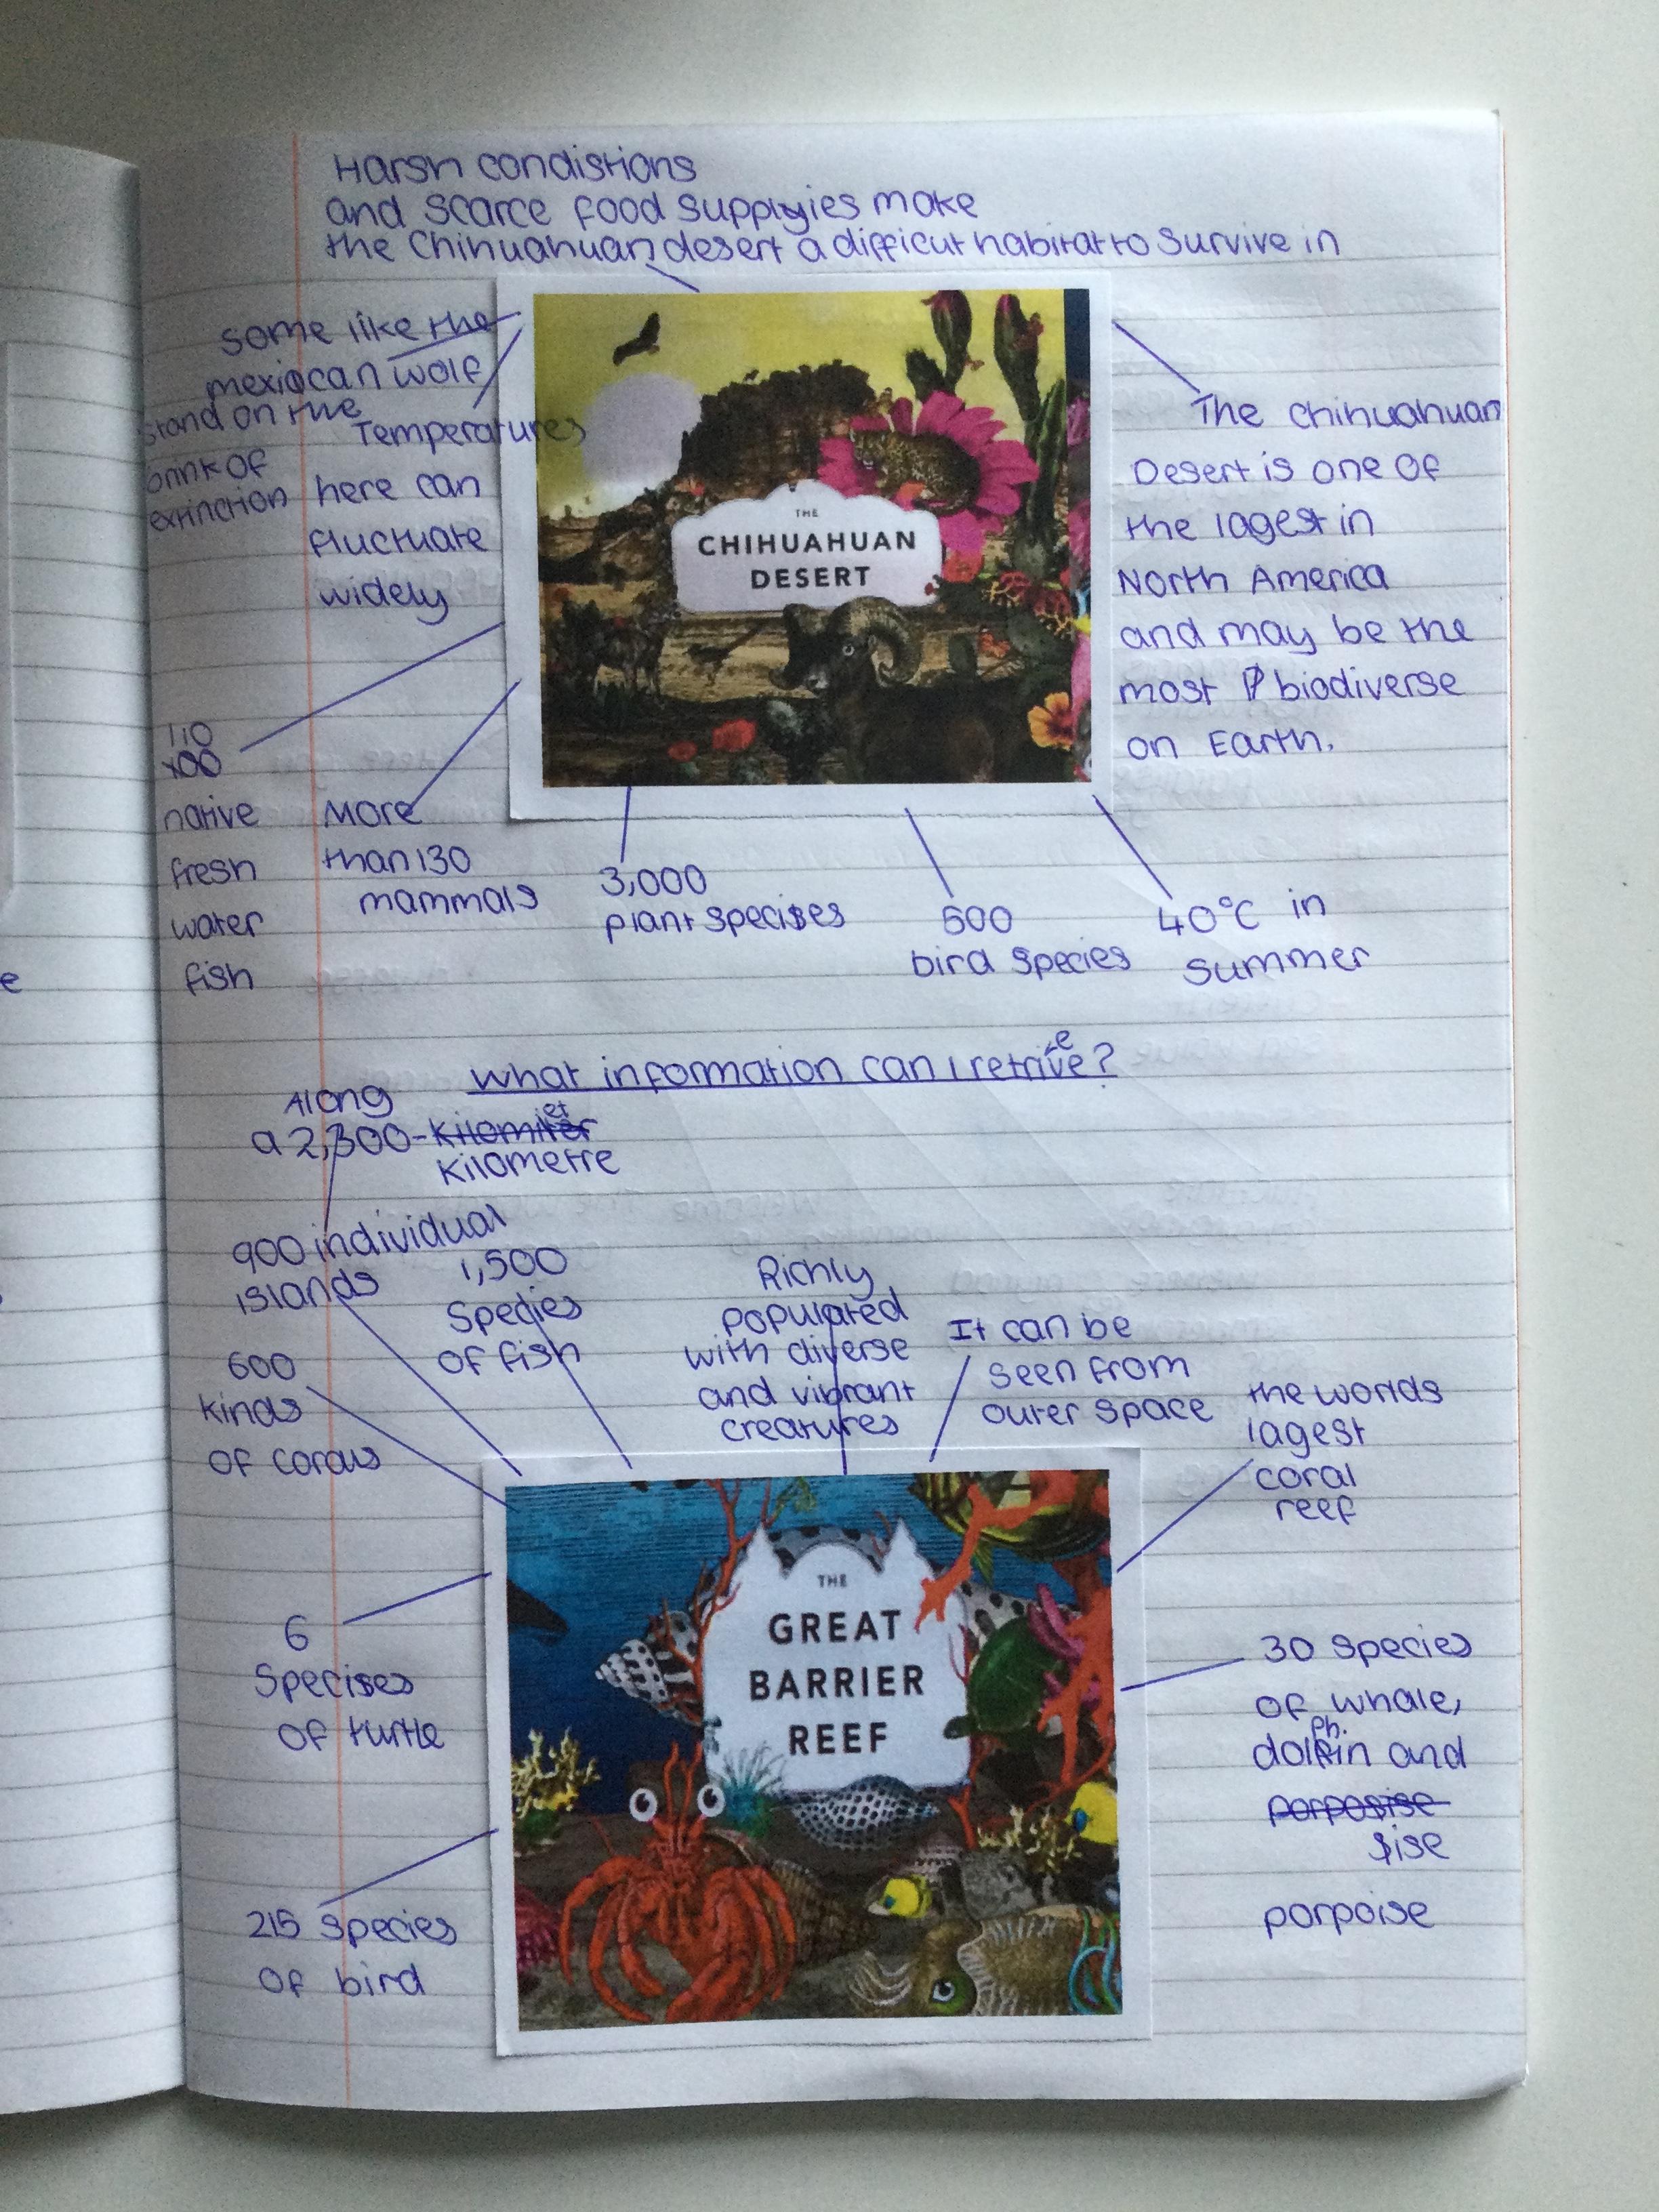 Harsh condistions
and scarce food supplyies make
the Chihuahuan desert a difficut habitat to survive in
some like the
mexiocan wolf
stand on the
brink of
extinction
Temperatures
here can
fluctuate
widely
THE
CHIHUAHUAN
DESERT
The chihuahuan
Desert is one of
the lagest in
North America
and may be the
most biodiverse
on Earth.
110
100
native
fresh
water
fish
More
than 130
mammals
3,000
plant species
500
bird species
40°C in
summer
e
What information can i retrive?
e
Along
a 2,300-kilomiter
et
kilometre
900 individual
islands
1,500
Species
of fish
600
kinds
of corals
Richly
populated
with diverse
and vibrant
creatures
It can be
seen from
outer space
the worlds
lagest
coral
reef
THE
GREAT
BARRIER
REEF
6
Species
of turtle
215 species
of bird
30 species
of whale,
ph.
dolfin and
porposise
sise
porpoise